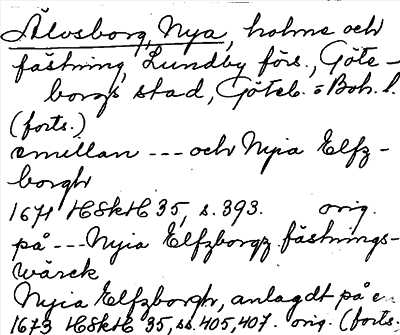 Älvsborg, Nya, holme och
fästning, Lundbyförs., Göte-
borgs stad, Göteb. o Boh. l.
(forts.)
emillan --- och Nyia Elfz-
borgh
1671 HSkH 35, s. 393. orig.
på --- Nyia Elfzborgz fästnings-
wärck
Nyia Elfzborgh, anlagdt på e
1673 HSkH 35, ss. 405, 407. orig. (forts.